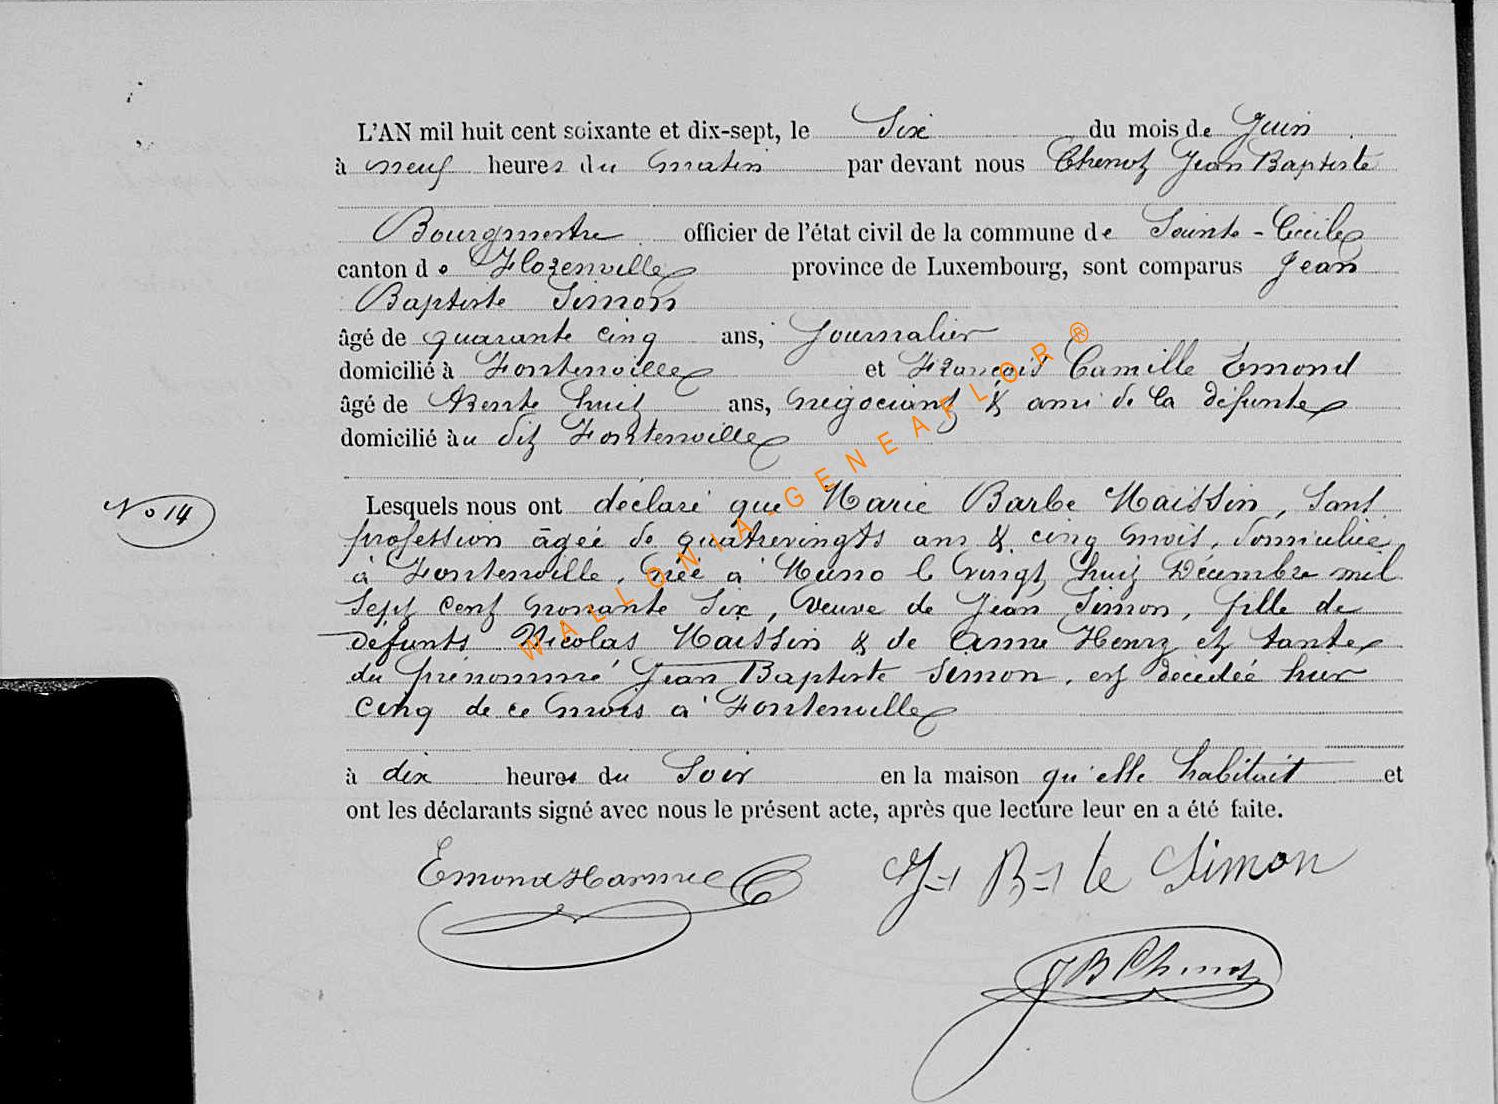 L'AN mil huit cent soixante et dix-sept, le Six du mois de Juin
à neuf heures du matin par devant nous Chenot Jean Baptiste
Bourgmestre officier de l'état civil de la commune de Sainte-Cécile
canton de Florenville province de Luxembourg, sont comparus Jean
Baptiste Simon
âgé de quarante cinq ans, Journalier
domicilié à Fontenoille et François Camille Emond
âgé de trente huit ans, négociant & ami de la défunte
domicilié au dit Fontenoille
N° 14
Lesquels nous ont déclaré que Marie Barbe Maissin, Sans
profession âgée de quatrevingts ans & cinq mois, domiciliée
à Fontenoille, née à Muno le vingt huit Décembre mil
Sept Cent nonante Six, Veuve de Jean Simon, fille de
défunts Nicolas Maissin & de Anne Henry et tante
du prénommé Jean Baptiste Simon, est décédée hier
cinq de ce mois à Fontenoille
à dix heures du Soir en la maison qu'elle habitait et
ont les déclarants signé avec nous le présent acte, après que lecture leur en a été faite.
Emond J-n B-te Simon
JB Chenot
WALLONIA-GENEAFLOR®